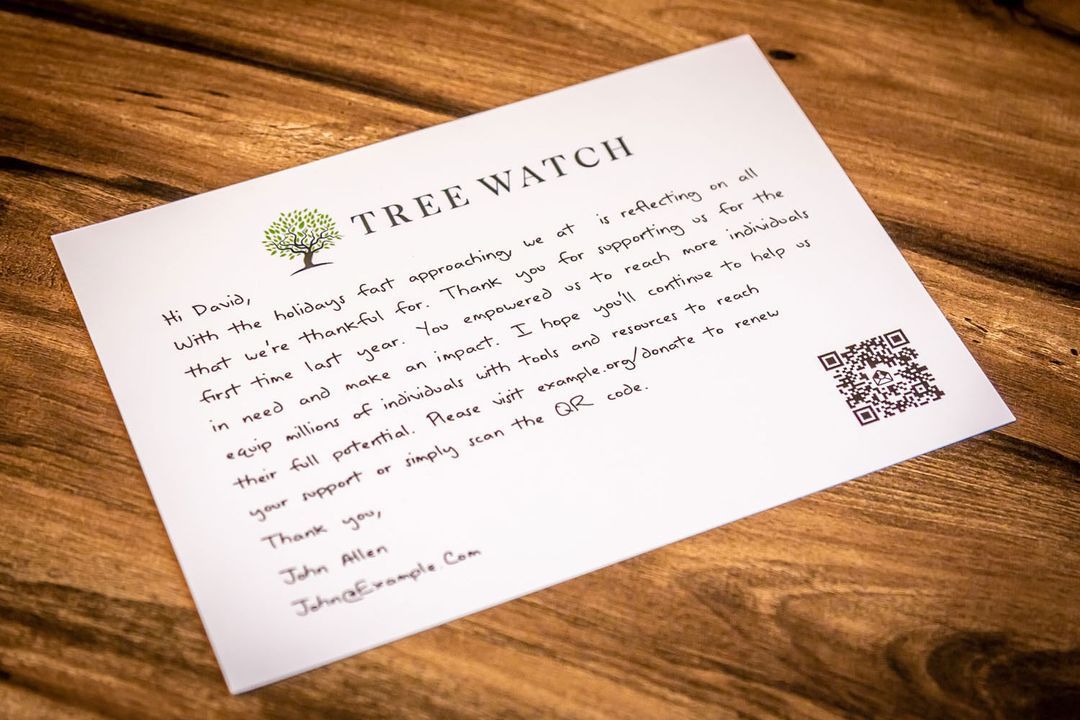 TREE WATCH
Hi David,
With the holidays fast approaching, we at is reflecting on all
that we're thankful for. Thank you for supporting us for the
first time last year. You empowered us to reach more individuals
in need and make an impact. I hope you'll continue to help us
equip millions of individuals with tools and resources to reach
their full potential. Please visit example.org/donate to renew
your support or simply scan the QR code.
Thank you,
John Allen
John@Example.Com